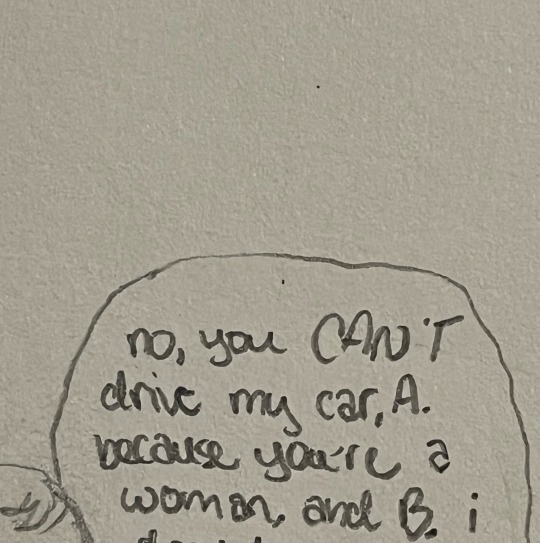 no, you CAN'T
drive my car, A.
because you're a
woman, and B. i